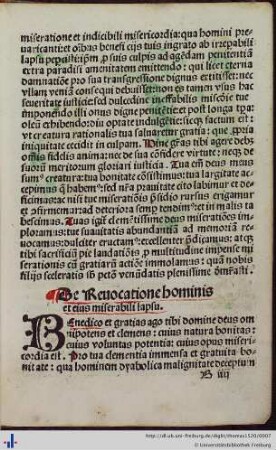 miseratione et indicibili misericordia: qua homini pre
uaricanti: et oībus benefi cijs tuis ingrato ab irrepabili
lapsu
p suis culpis ad agēdam penitentiā
extra paradisi amenitatem emittendo: qui licet eterna
damnatiōe pro sua transgressione dignus extitisset: nec
vllam veniā consequi debuisset: non es tamen vsus hac
seueritate iusticie: sed dulcedine ineffabilis miscōie tue
imponendo illi onus digne penitētie: et post longa tpa
oleū exhibendo: sic qz factum est:
vt creatura rationalis tua saluaretur gratia: que ppria
iniquitate cecidit in culpam. Hinc grās tibi agere debz
omīs fidelis anima: nec de sua cōfidere virtute: necqz de
suorū meritorum gloriari iusticia. Tua em̄ deus meus
sum creatura: tua bonitate
tua largitate ac
cepimus qd habem
sed nrā prauitate cito labimur et de
ficimus: ac nisi tue miseratiōis psidio rursus erigamur
et ofirmemur: ad deteriora semp tendim
et in malis ta
bescimus. Tuas igit clemētissime deus miseratiōes im
ploramus: tue suauitatis abundantiā ad memoriā re
uocamus: dulciter eructam
excellenter pdicamus: atqz
tibi sacrificiū pie laudatiōis p multitudine impense mi
serationis
gratiarū actiōe immolamus: qua nobis
filijs sceleratis
petē venādatis plenissime
De Reuocatione hominis
et eius miserabili lapsu.
BEnedico et gratias ago tibi domine deus om
nipotens et clemens: cuius natura bonitas:
cuius voluntas potentia: cuius opus miseri
cordia est. Pro tua clementia immensa et gratuita bo
nitate: qua hominem dyabolica malignitate deceptum
B iiij
http://dl.ub.uni-freiburg.de/diglit/thomas1520/0007
© Universitätsbibliothek Freiburg